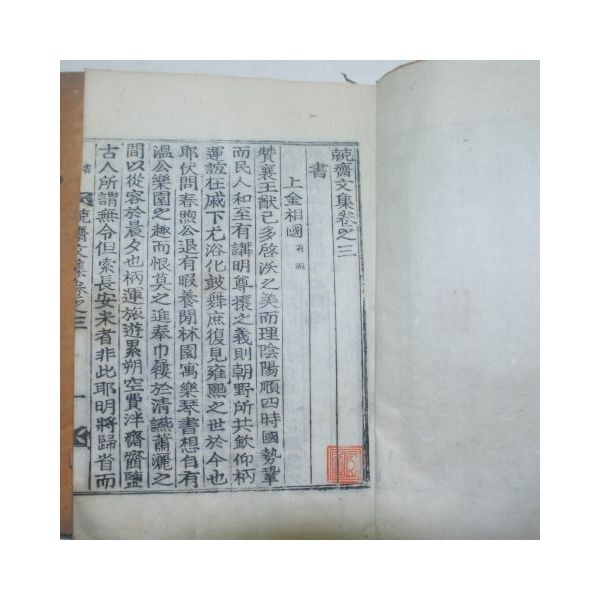 兢齋文集卷之三
書
上金相國
贊襄王猷已多啓沃之美而理陰陽順四時國勢鞏
而民人和至有講明尊攘之義則朝野所共欽仰柄
運恆在戚下尤浴化鼓舞庶復見雍熙之世於今也
耶伏問春煦公退有暇養閒林園寓樂琴書想自有
溫公樂園之趣而恨莫之進奉巾屨於清讌蕭灑之
間以從容於晨夕也柄運旅遊累朔空費泮齋虀鹽
古人所謂無令但索長安米者非此耶明將歸省而
兢齋文集卷之三
一